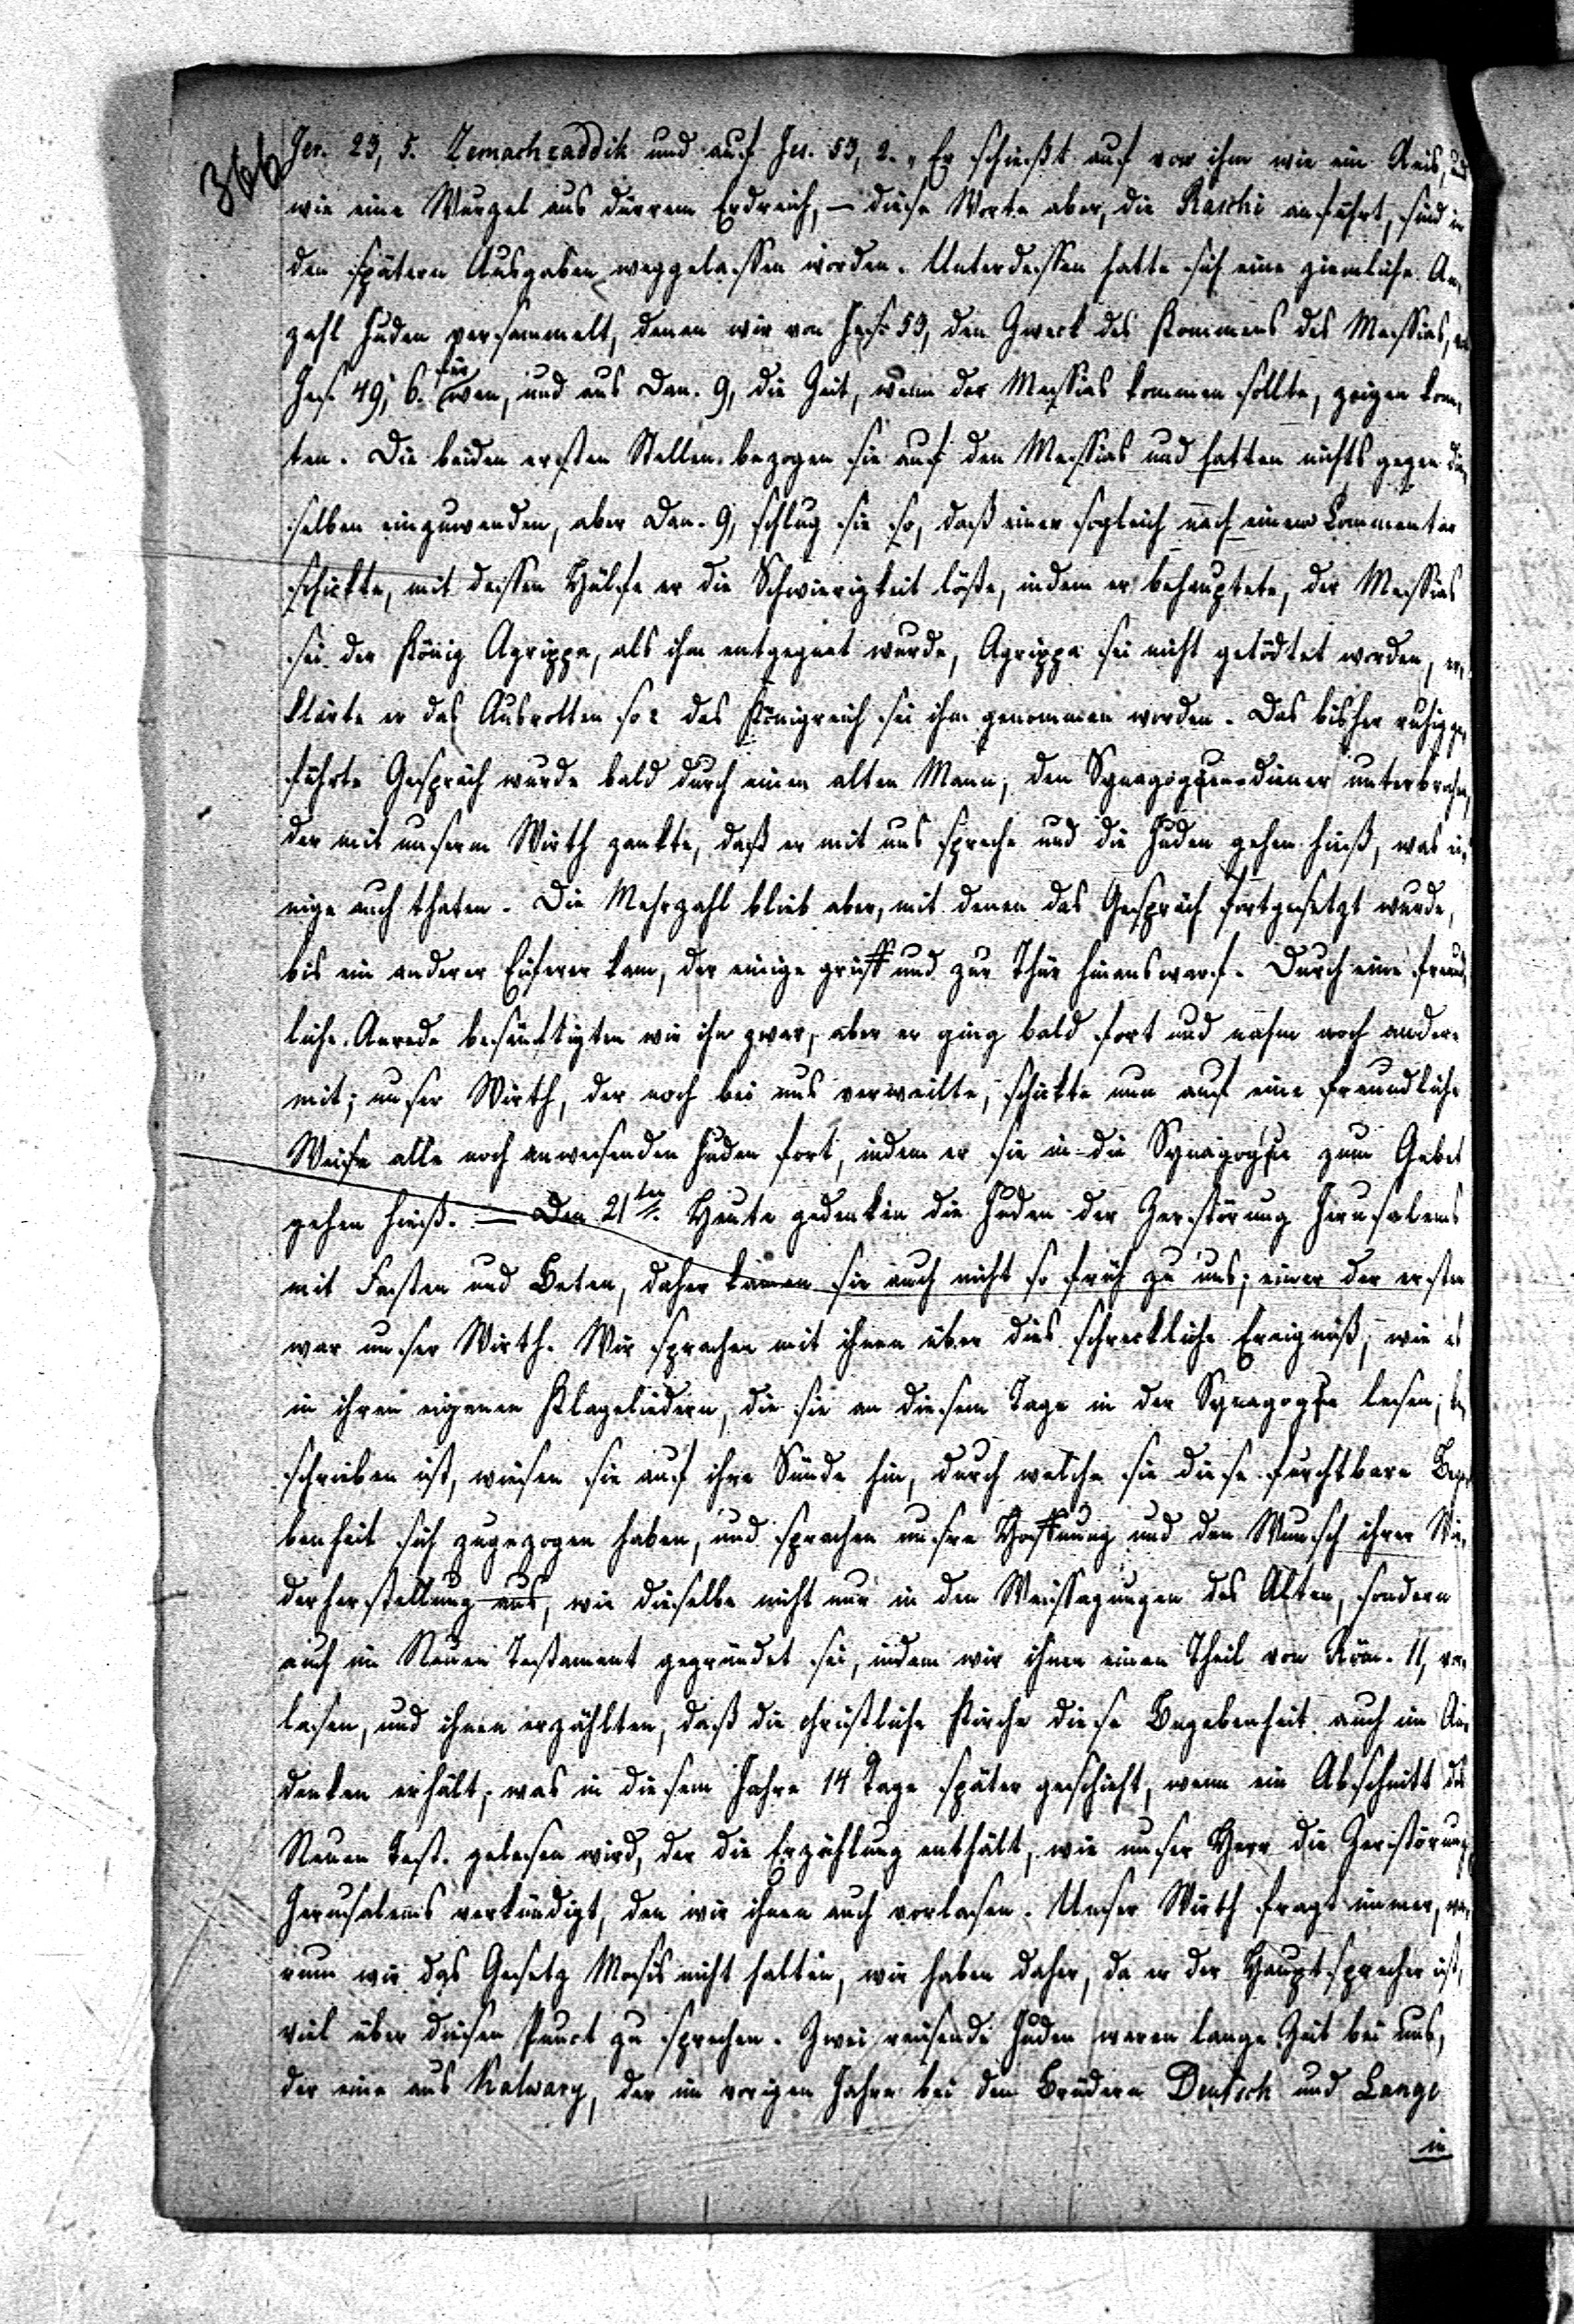 366
Jer. 23, 5. Zemachzaddik und auf Jes. 53, 2. „Er schießt auf vor ihm wie ein Reis, und
wie eine Wurzel aus dürrem Erdreich, — diese Worte aber, die Raschi anführt, sind in
den spätern Ausgaben weggelassen worden. Unterdessen hatte sich eine ziemliche An-
zahl Juden versammelt, denen wir von Jes. 53, den Zweck des Kommens des Messias,
Jes. 49, 6. für wen, und aus Dan. 9, die Zeit, wenn der Messias kommen sollte, zeigen konn-
ten. Die beiden ersten Stellen bezogen sie auf den Messias und hatten nichts gegen die-
selben einzuwenden, aber Dan. 9, schlug sie so, daß einer sogleich nach einem Commentar
schickte, mit dessen Hülfe er die Schwierigkeit löste, indem er behauptete, der Messias
sei der König Agrippa, als ihm entgegnet wurde, Agrippa sei nicht getödtet worden, er-
klärte er das Ausrotten so: das Königreich sei ihm genommen worden. Das bisher ruhig ge-
führte Gespräch wurde bald durch einen alten Mann, den Synagogen-diener unterbrochen,
der mit unserm Wirth zankte, daß er mit uns spreche und die Juden gehen hieß, was ei-
nige auch thaten. Die Mehrzahl blieb aber, mit denen das Gespräch fortgesetzt wurde,
bis ein anderer Eiferer kam, der einige griff und zur Thür hinaus warf. Durch eine freund-
liche Anrede besänftigten wir ihn zwar, aber er ging bald fort und nahm noch andere
mit; unser Wirth, der noch bei uns verweilte, schickte nun auf eine freundliche
Weise alle noch anwesenden Juden fort, indem er sie in die Synagoge zum Gebet
gehen hieß. — Den 21ten. Heute gedenken die Juden der Zerstörung Jerusalems
mit Fasten und Beten, daher kamen sie auch nicht so früh zu uns; einer der ersten
war unser Wirth. Wir sprachen mit ihnen über dies schreckliche Ereigniß, wie es
in ihren eigenen Klageliedern, die sie an diesem Tage in der Synagoge lesen, be-
schrieben ist, wiesen sie auf ihre Sünde hin, durch welche sie diese furchtbare Bege-
benheit sich zugezogen haben, und sprachen unsre Hoffnung und den Wunsch ihrer Wie-
derherstellung aus, wie dieselbe nicht nur in den Weissagungen des Alten, sondern
auch im Neuen Testament gegründet sei, indem wir ihnen einen Theil von Röm. 11, vor-
lasen, und ihnen erzählten, daß die christliche Kirche diese Begebenheit auch im An-
denken erhält, was in diesem Jahre 14 Tage später geschieht, wenn ein Abschnitt des
Neuen Test. gelesen wird, der die Erzählung enthält, wie unser Herr die Zerstörung
Jerusalems verkündigt, den wir ihnen auch vorlasen. Unser Wirth fragt immer, wa-
rum wir das Gesetz Mosis nicht halten, wir haben daher, da er der Hauptsprecher ist,
viel über diesen Punct zu sprechen. Zwei reisende Juden waren lange Zeit bei uns,
der eine aus Kalwary, der im vorigen Jahre bei den Brüdern Deutsch und Lange
in